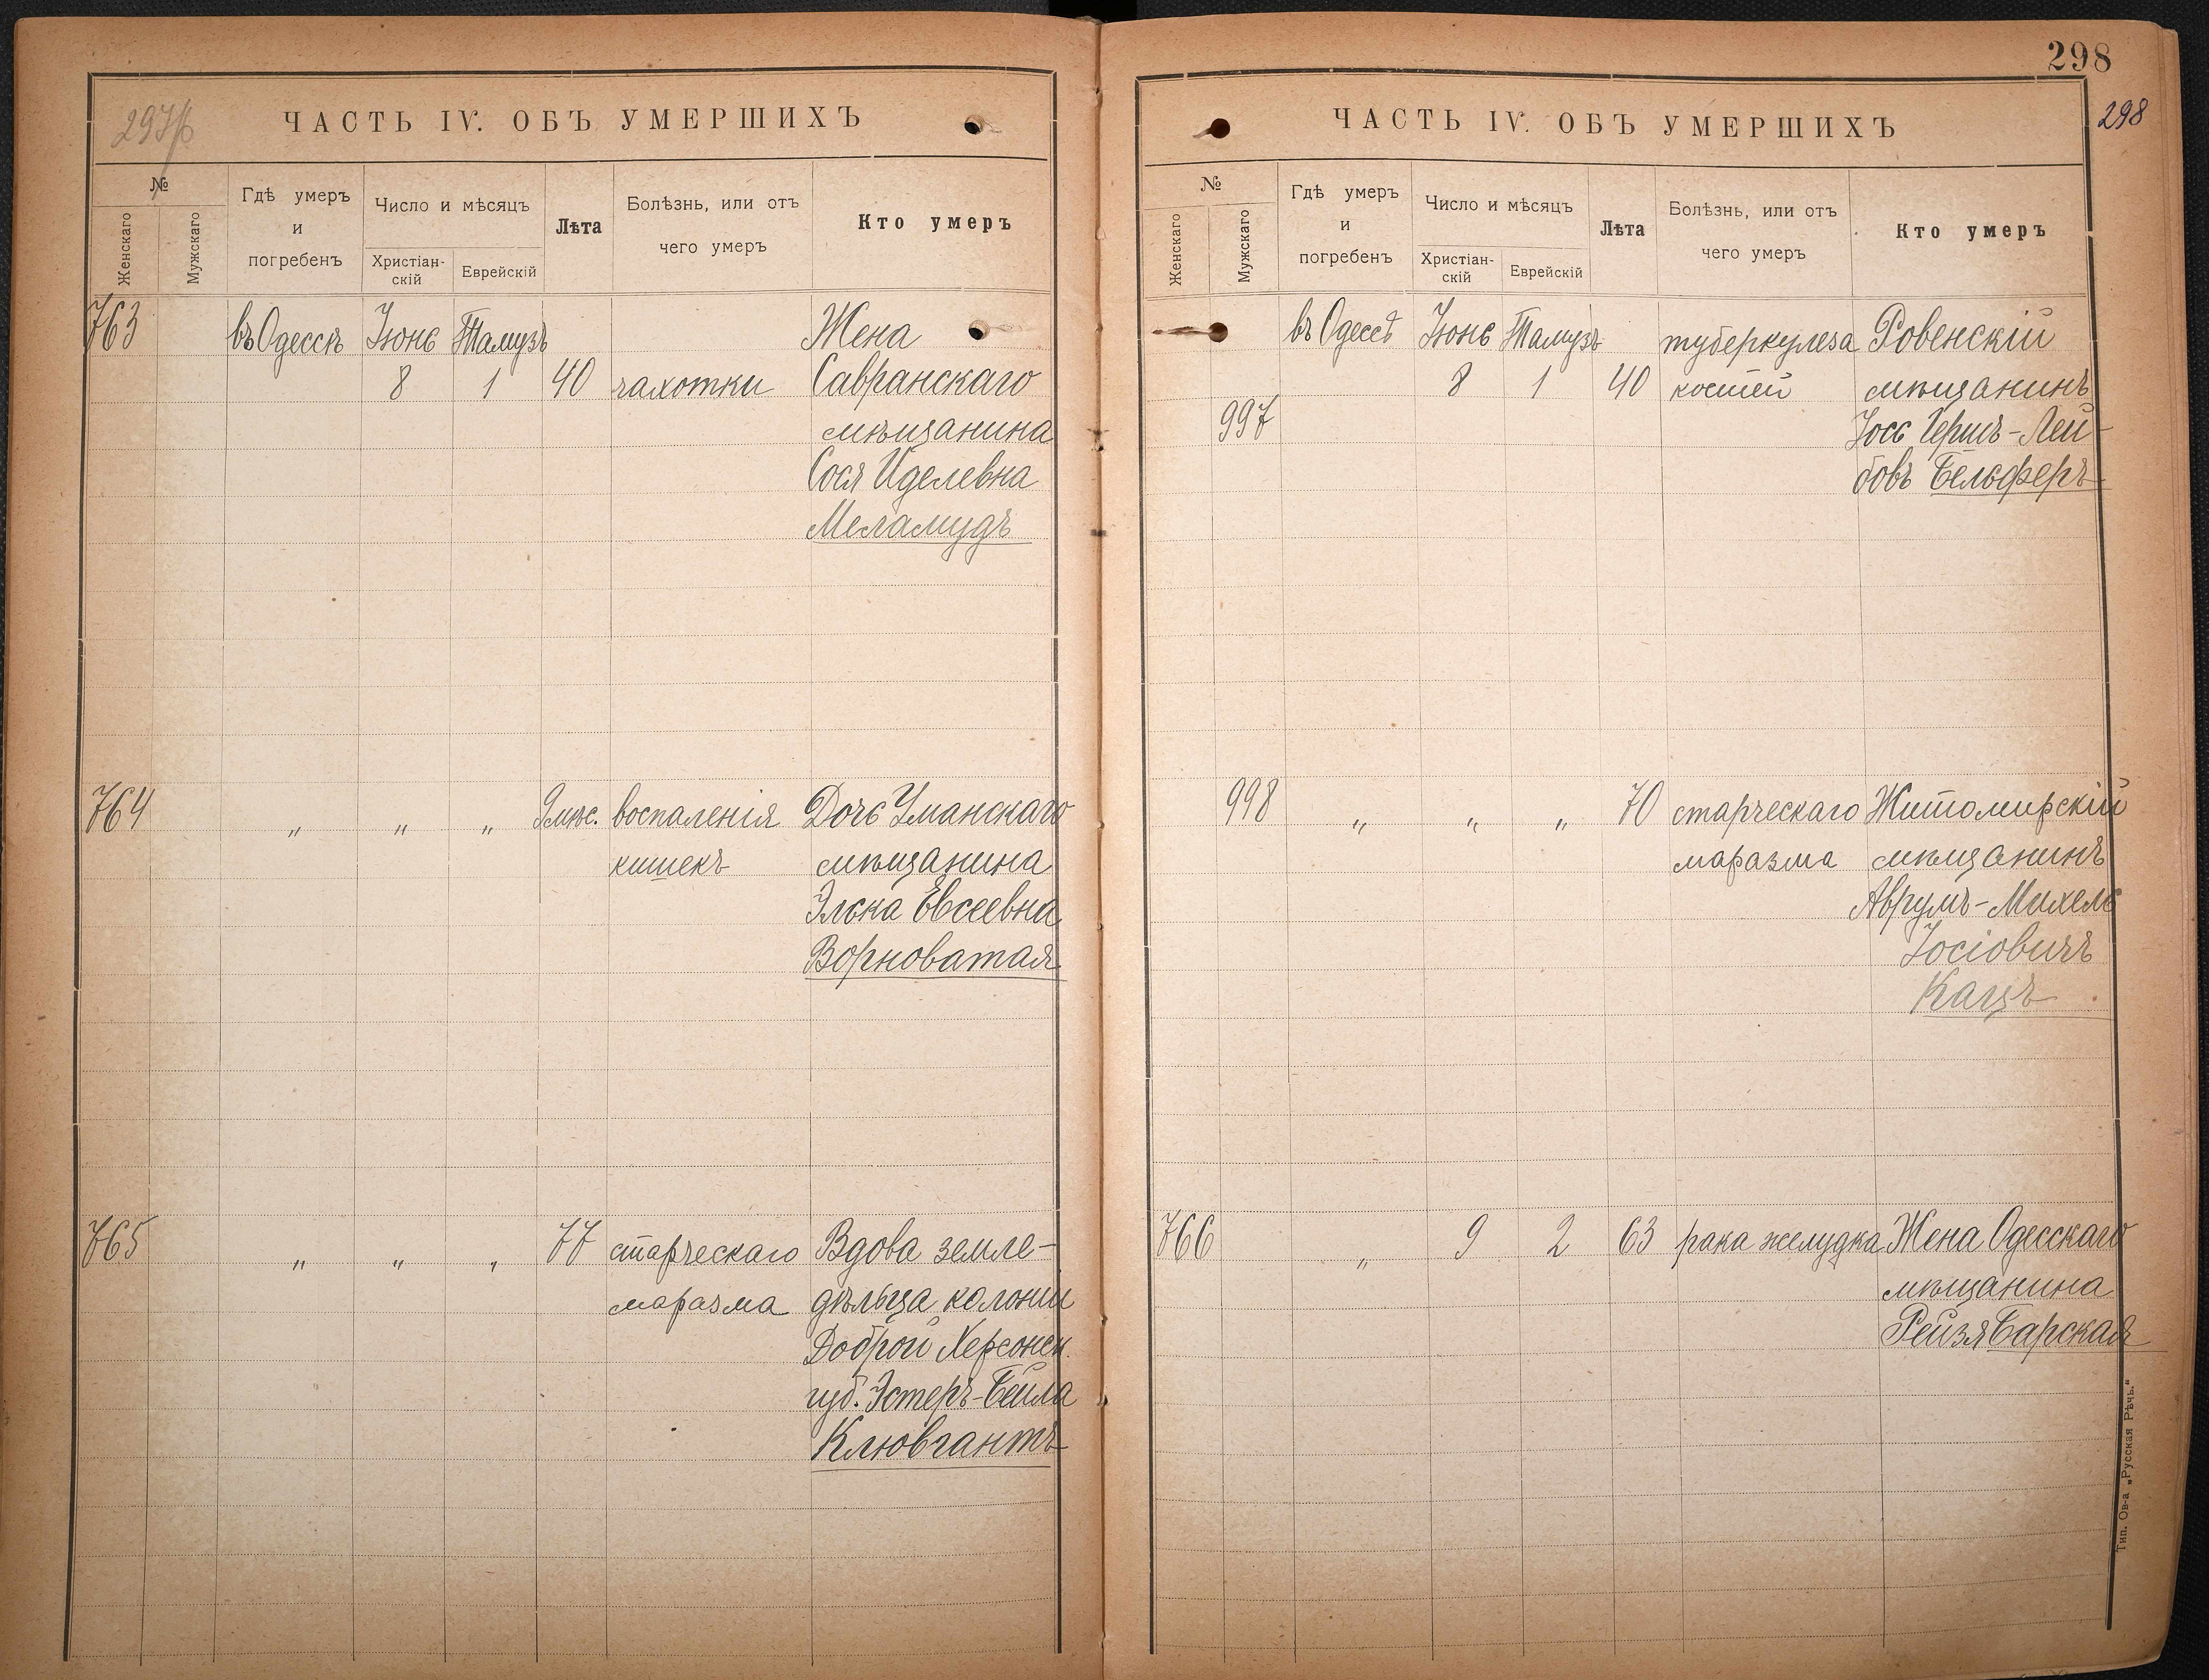 297/б
ЧАСТЬ IV. ОБЪ УМЕРШИХЪ
№
Женскаго
Мужскаго
Гдѣ умеръ
и
погребенъ
Число и мѣсяцъ
Христіан-
скій
Еврейскій
Лѣта
Болѣзнь, или отъ
чего умеръ
Кто умеръ
763 въ Одессѣ Іюнь Тамузъ Жена
8 1 40 чахотки Савранскаго
мѣщанина
Сося Иделевна
Меламудъ
764 " " " 9 мѣс. воспаленія Дочь Уманскаго
кишекъ мѣщанина
Элька Евсеевна
Ворноватая
765 " " " 77 старческаго Вдова земле-
маразма дѣльца колоніи
Доброй Херсонск.
губ. Эстеръ-Бейла
Клювгантъ
298
298
ЧАСТЬ IV. ОБЪ УМЕРШИХЪ
№
Женскаго
Мужскаго
Гдѣ умеръ
и
погребенъ
Число и мѣсяцъ
Христіан-
скій
Еврейскій
Лѣта
Болѣзнь, или отъ
чего умеръ
Кто умеръ
въ Одессѣ Іюнь Тамузъ туберкулеза Ровенскій
8 1 40 костей мѣщанинъ
997 Іось Гершъ-Лей-
бовъ Бельферъ
998 " " " 70 старческаго Житомирскій
маразма мѣщанинъ
Аврумъ-Михель
Іосіовичъ
Кацъ
766 " 9 2 63 рака желудка Жена Одесскаго
мѣщанина
Рейзя Барская
Тип. Ов-а „Русская Рѣчь.“